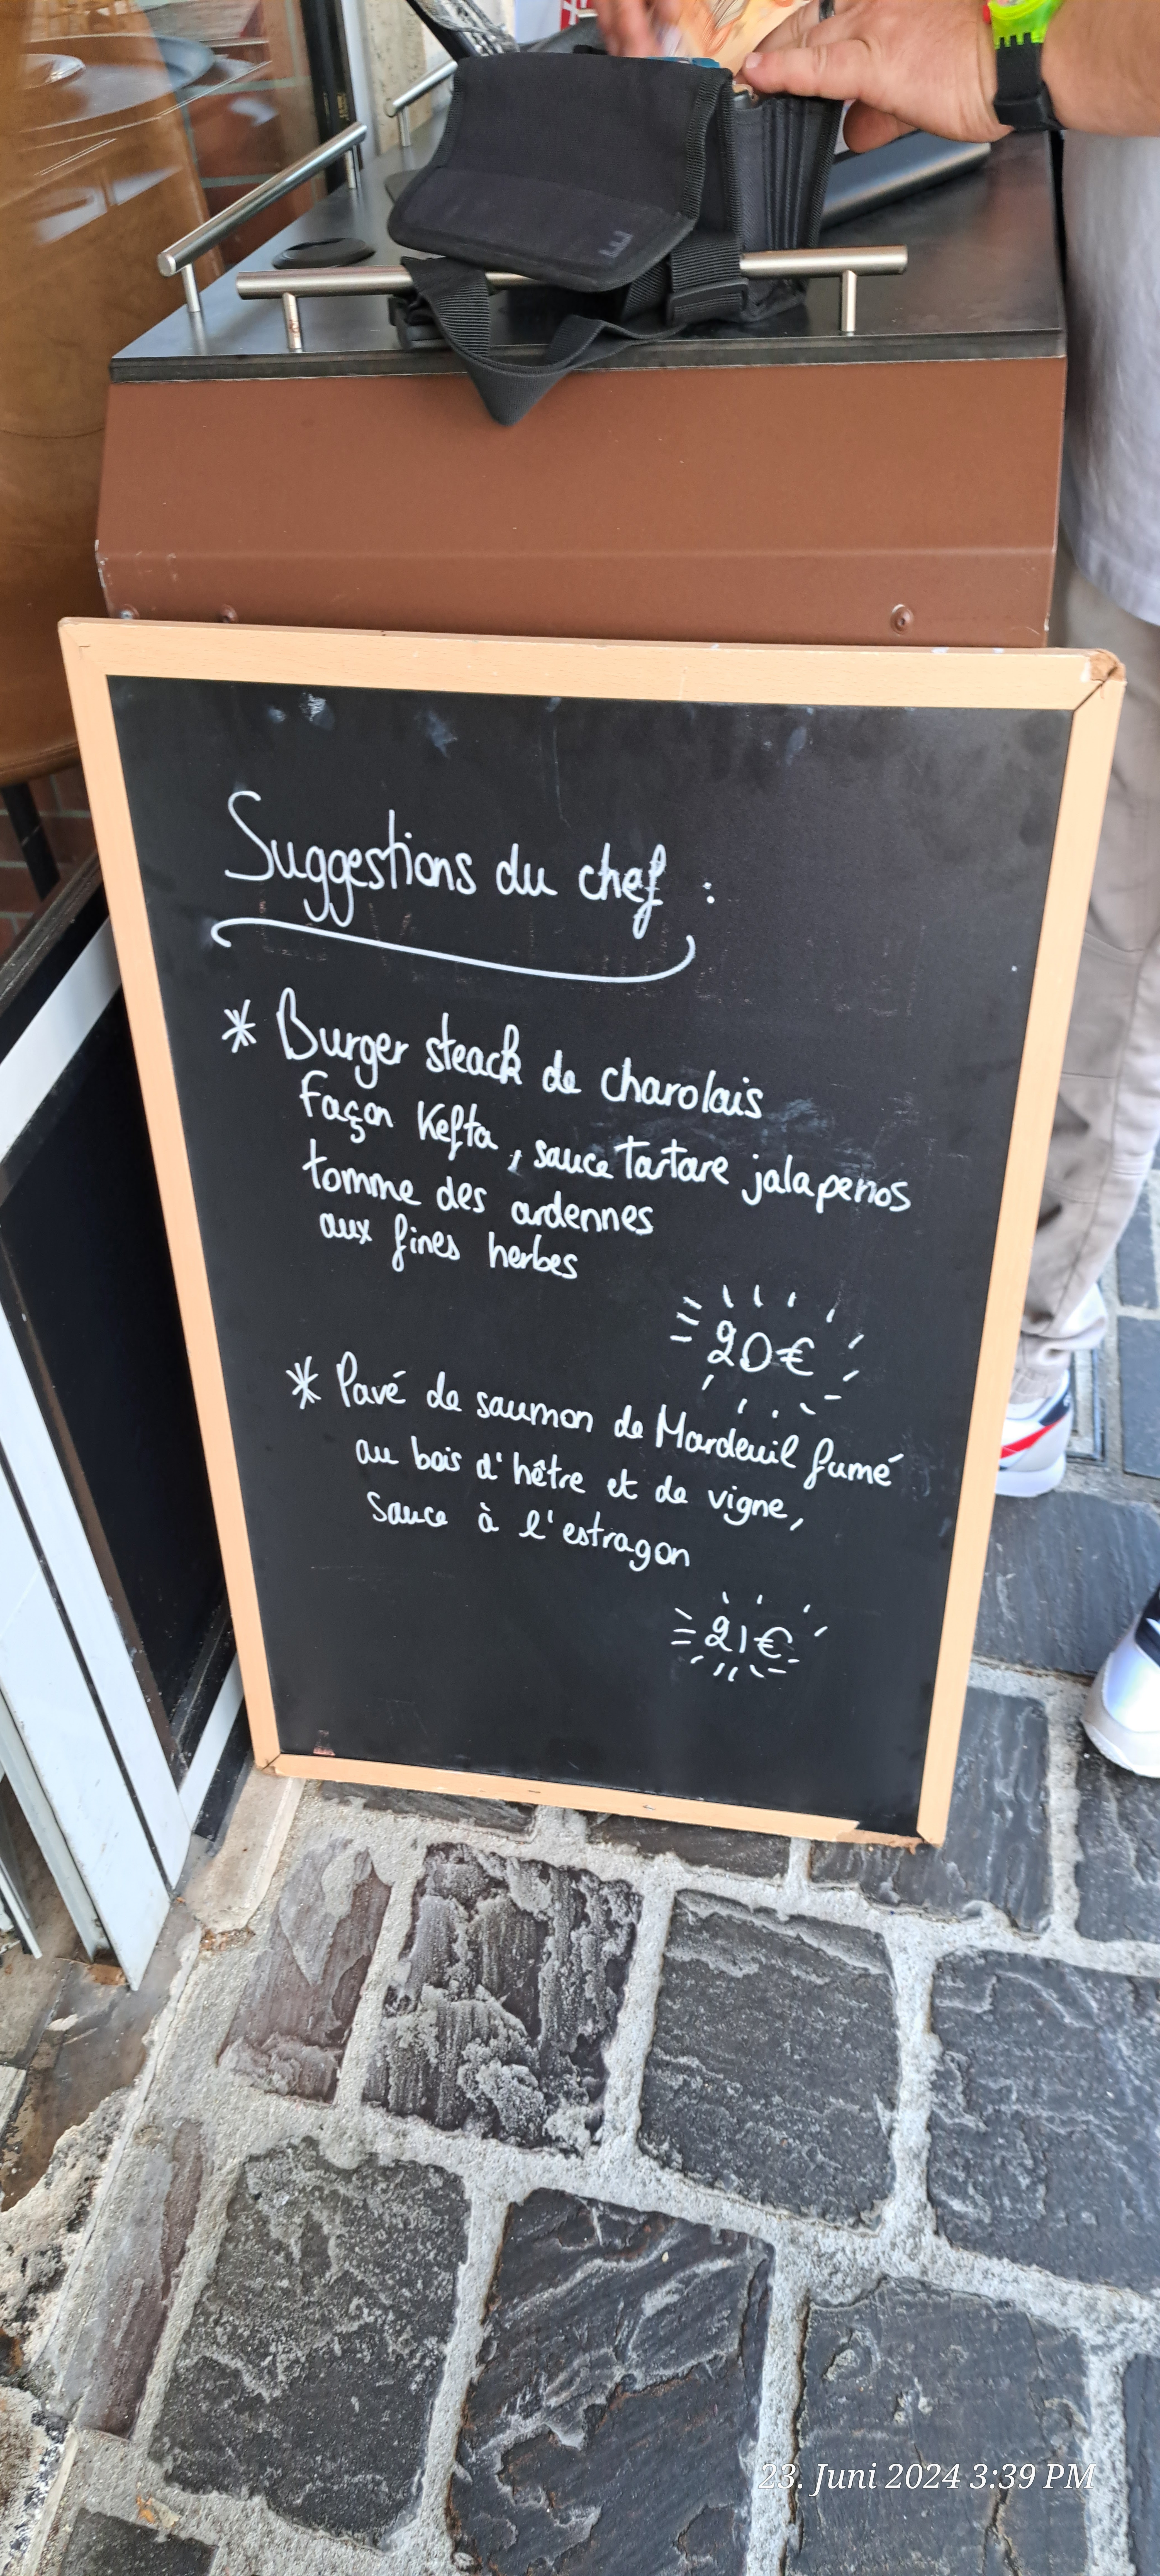 Suggestions du chef :
* Burger steack de charolais
Façon Kefta, sauce tartare jalapenos
tomme des ardennes
aux fines herbes
20€
* Pavé de saumon de Mardeuil fumé
au bois d'hêtre et de vigne,
sauce à l'estragon
21€
23. Juni 2024 3:39 PM